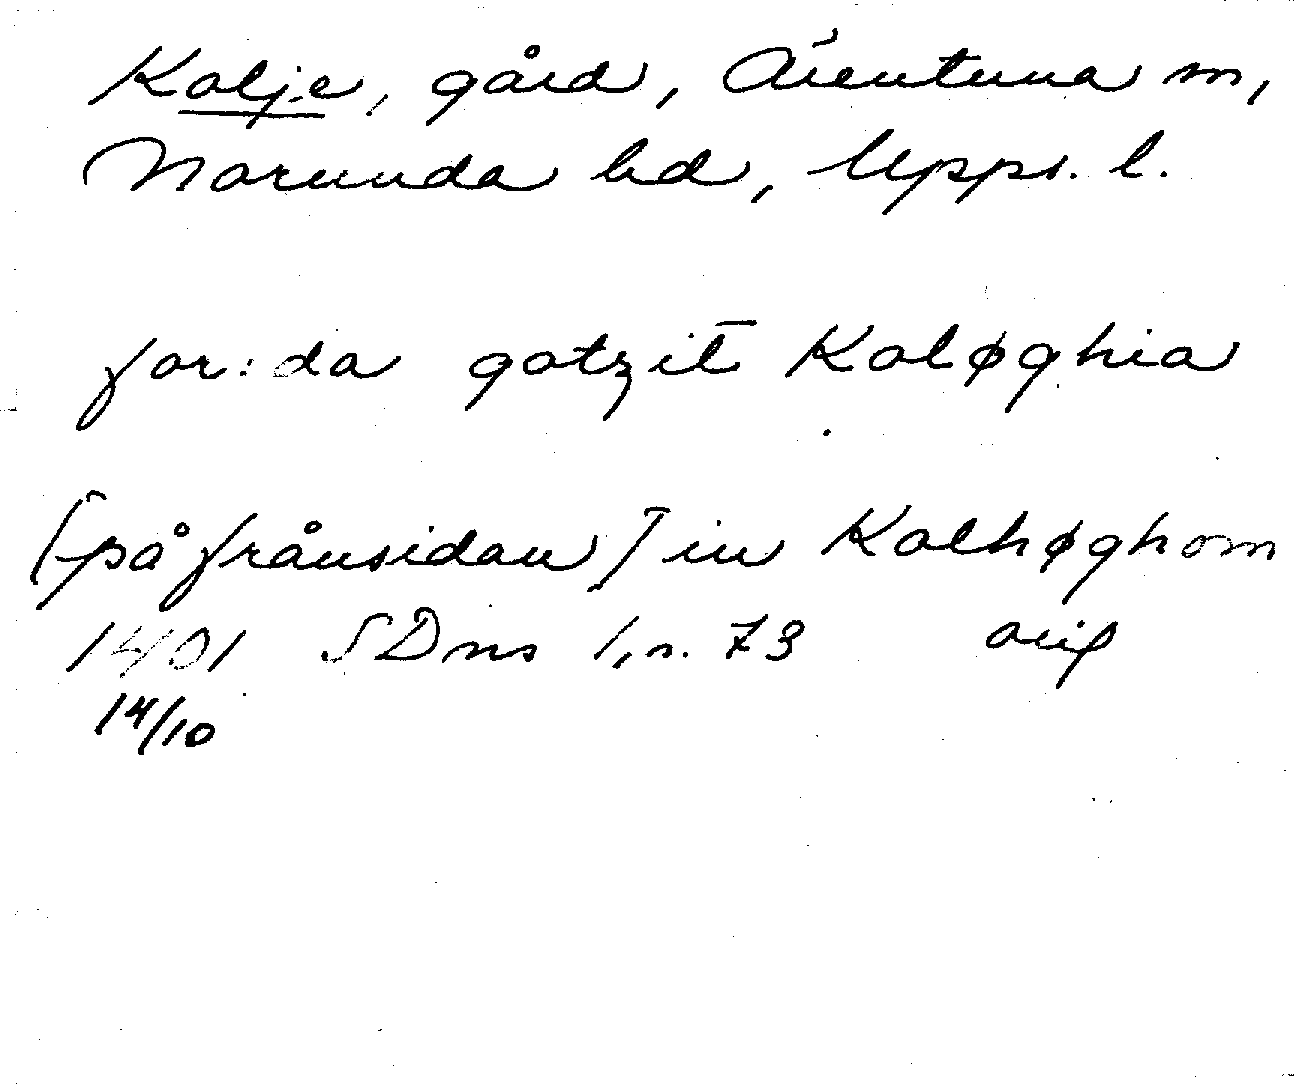 Kolje, gård, Ärentuna sn,
Norunda hd, Upps. l.
for:da gotzit Koløghia
[på frånsidan] in Kolhøghom
1401 SDns 1, s. 73 avs
14/10